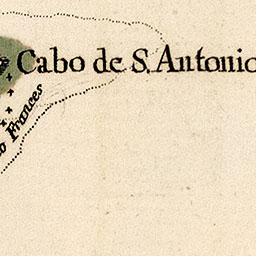 Cabo de S. Antonio
Frances